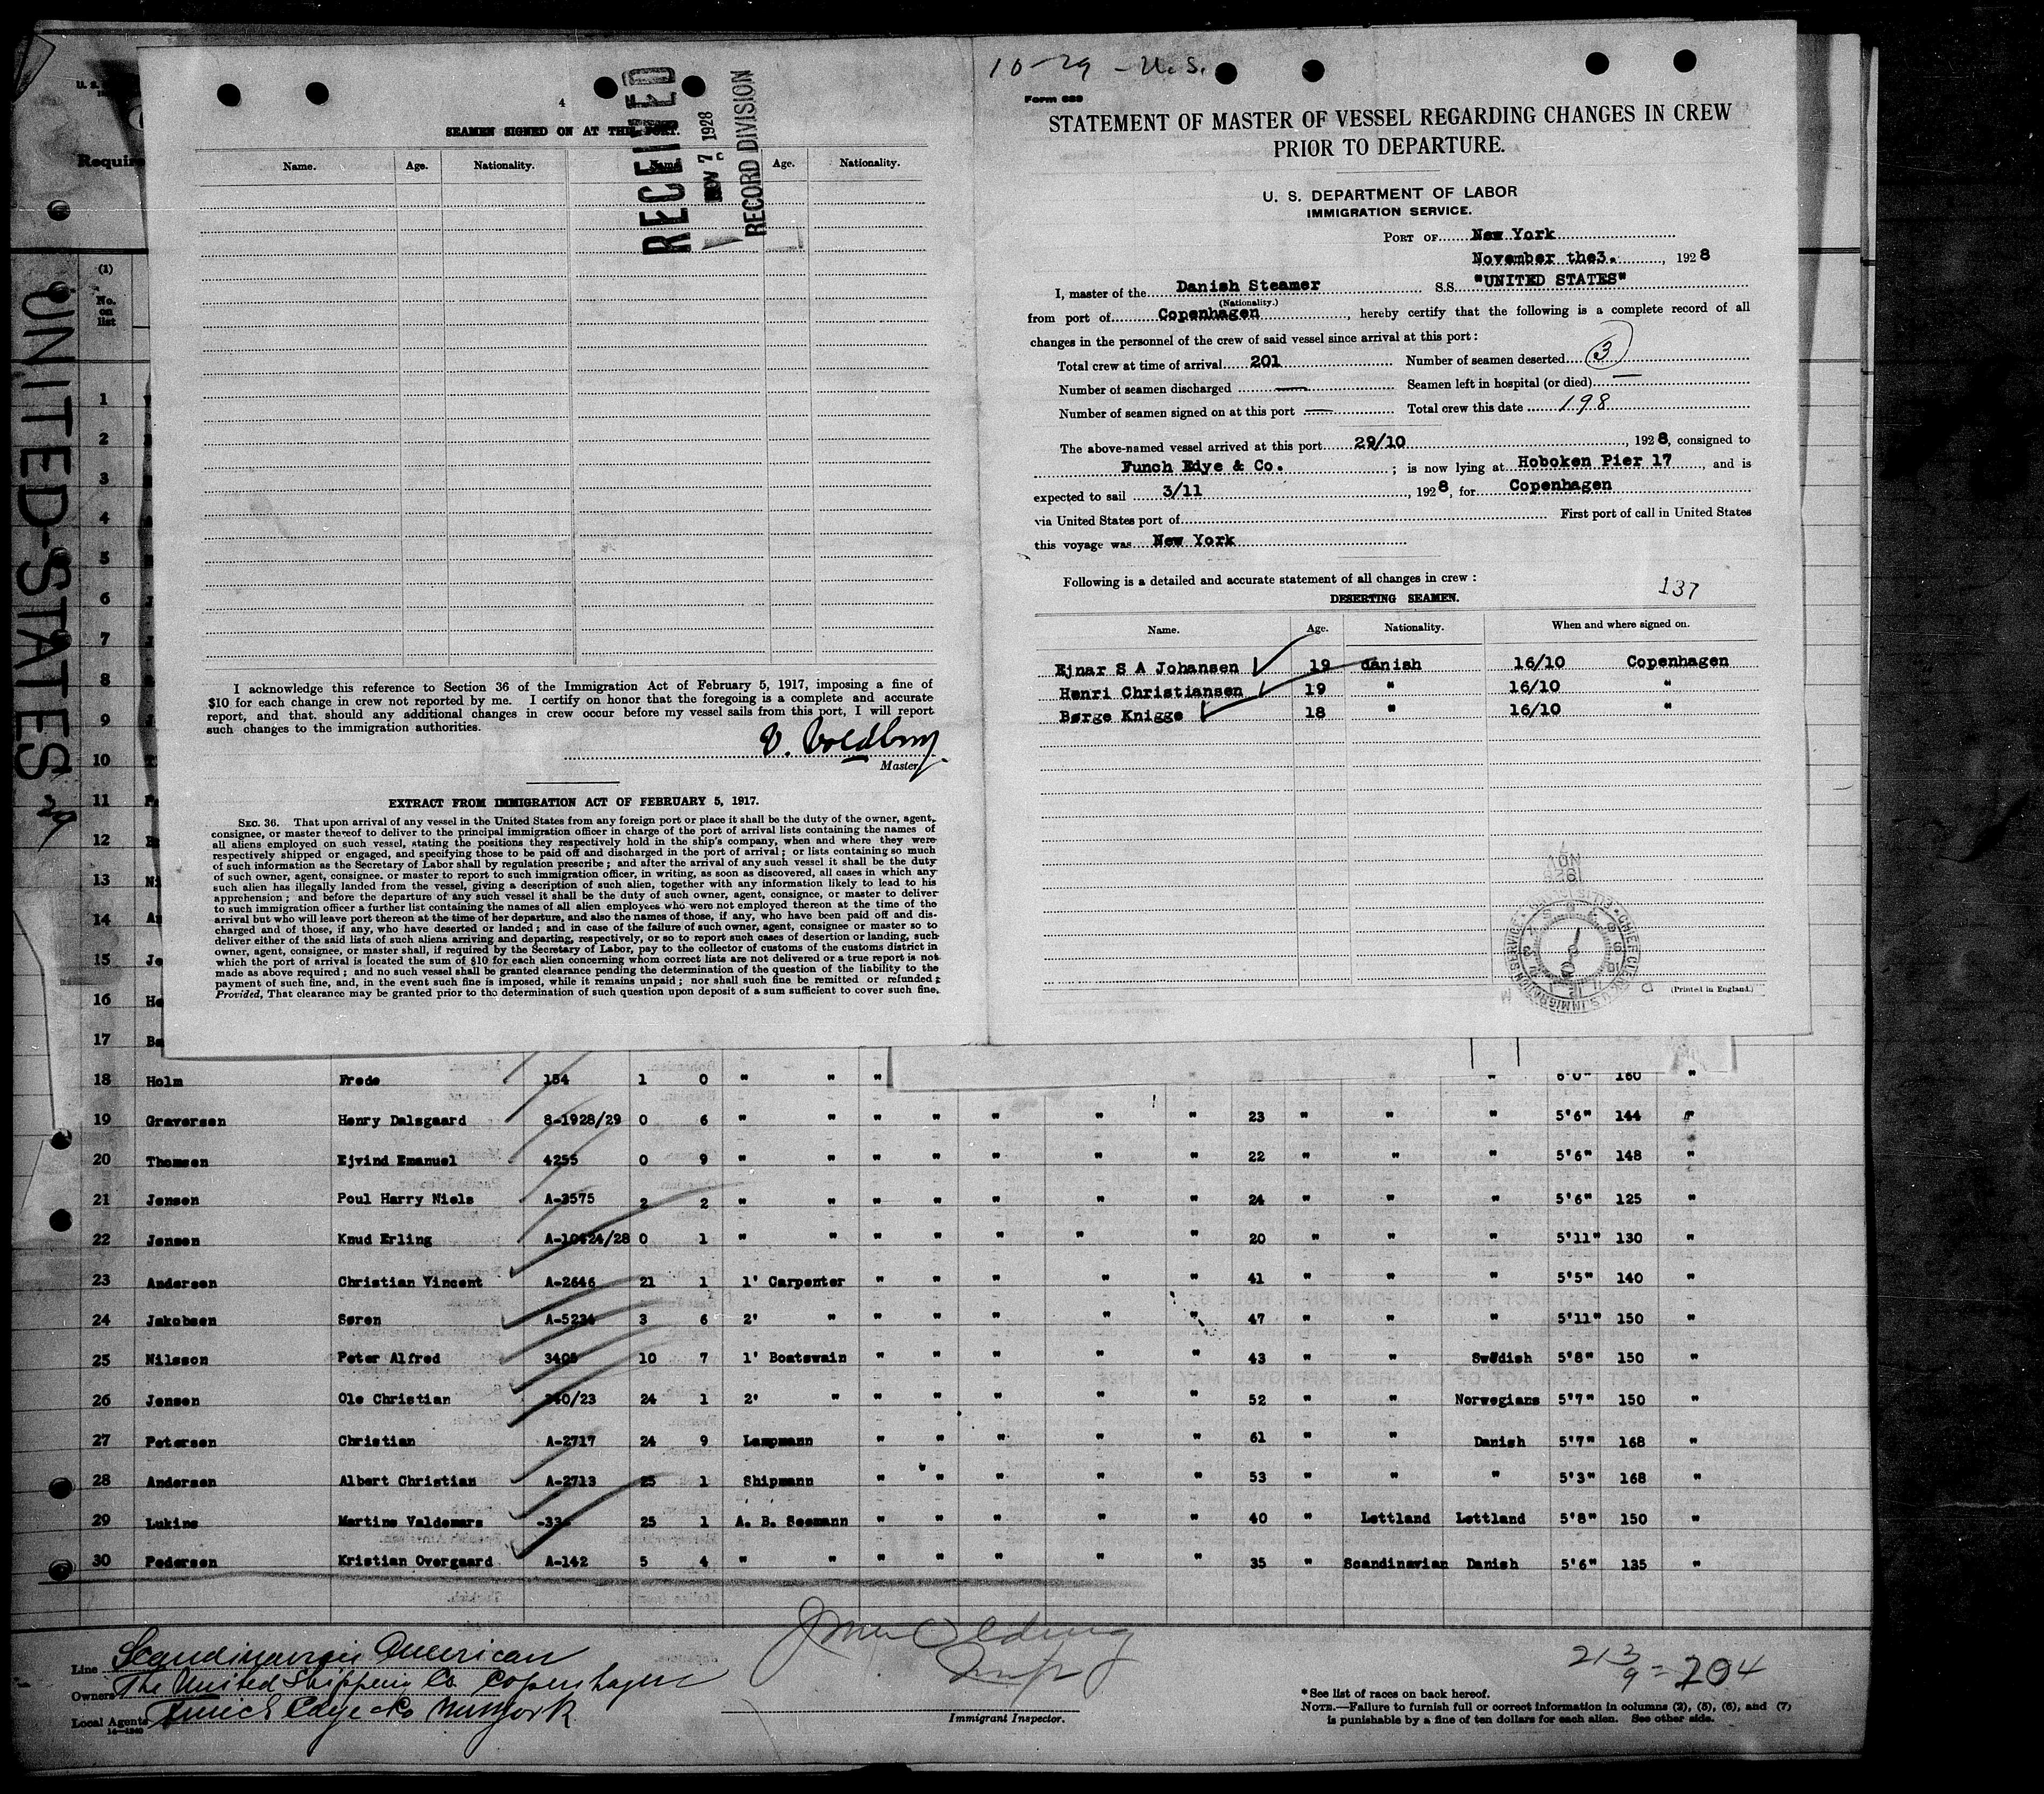 4
SEAMEN SIGNED ON AT THIS PORT.
Name. Age. Nationality. Name. Age. Nationality.
RECEIVED
NOV 7 1928
RECORD DIVISION
I acknowledge this reference to Section 36 of the Immigration Act of February 5, 1917, imposing a fine of
$10 for each change in crew not reported by me. I certify on honor that the foregoing is a complete and accurate
report, and that. should any additional changes in crew occur before my vessel sails from this port, I will report
such changes to the immigration authorities.
Master.
EXTRACT FROM IMMIGRATION ACT OF FEBRUARY 5, 1917.
SEC. 36. That upon arrival of any vessel in the United States from any foreign port or place it shall be the duty of the owner, agent,
consignee, or master thereof to deliver to the principal immigration officer in charge of the port of arrival lists containing the names of
all aliens employed on such vessel, stating the positions they respectively hold in the ship's company, when and where they were
respectively shipped or engaged, and specifying those to be paid off and discharged in the port of arrival; or lists containing so much
of such information as the Secretary of Labor shall by regulation prescribe; and after the arrival of any such vessel it shall be the duty
of such owner, agent, consignee. or master to report to such immigration officer, in writing, as soon as discovered, all cases in which any
such alien has illegally landed from the vessel, giving a description of such alien, together with any information likely to lead to his
apprehension; and before the departure of any such vessel it shall be the duty of such owner, agent, consignee, or master to deliver
to such immigration officer a further list containing the names of all alien employees who were not employed thereon at the time of the
arrival but who will leave port thereon at the time of her departure, and also the names of those, if any, who have been paid off and dis-
charged and of those, if any, who have deserted or landed; and in case of the failure of such owner, agent, consignee or master so to
deliver either of the said lists of such aliens arriving and departing, respectively, or so to report such cases of desertion or landing, such
owner, agent, consignee, or master shall, if required by the Secretary of Labor, pay to the collector of customs of the customs district in
which the port of arrival is located the sum of $10 for each alien concerning whom correct lists are not delivered or a true report is not
made as above required; and no such vessel shall be granted clearance pending the determination of the question of the liability to the
payment of such fine, and, in the event such fine is imposed, while it remains unpaid; nor shall such fine be remitted or refunded:
Provided, That clearance may be granted prior to the determination of such question upon deposit of a sum sufficient to cover such fine.
10-29 - U.S.
Form 689
STATEMENT OF MASTER OF VESSEL REGARDING CHANGES IN CREW
PRIOR TO DEPARTURE.
U. S. DEPARTMENT OF LABOR
IMMIGRATION SERVICE.
PORT OF New York
November the3. , 1928
I, master of the Danish Steamer S.S. "UNITED STATES"
(Nationality.)
from port of Copenhagen, hereby certify that the following is a complete record of all
changes in the personnel of the crew of said vessel since arrival at this port:
Total crew at time of arrival 201 Number of seamen deserted 3
Number of seamen discharged — Seamen left in hospital (or died) —
Number of seamen signed on at this port — Total crew this date 198
The above-named vessel arrived at this port 29/10, 1928, consigned to
Funch Edye & Co. ; is now lying at Hoboken Pier 17, and is
expected to sail 3/11, 1928, for Copenhagen
via United States port of First port of call in United States
this voyage was New York
Following is a detailed and accurate statement of all changes in crew:
137
DESERTING SEAMEN.
Name. Age. Nationality. When and where signed on.
Ejnar S A Johansen 19 danish 16/10 Copenhagen
Henri Christiansen 19 " 16/10 "
Børge Knigge 18 " 16/10 "
(Printed in England.)
U. S.
Require
UNITED-STATES
29
(1)
No.
on
list
1
2
3
4
5
6
7
8
9
10
11
12
13
14
15 Je
16 He
17 Ba
18 Holm Frede 154 1 0 " " " " " 6'0" 160 "
19 Graversen Henry Dalsgaard 8-1928/29 0 6 " " " " " " " 23 " " " 5'6" 144 "
20 Thomsen Ejvind Emanuel 4255 0 9 " " " " " " " 22 " " " 5'6" 148 "
21 Jensen Poul Harry Niels A-3575 2 2 " " " " " " " 24 " " " 5'6" 125 "
22 Jensen Knud Erling A-10424/28 0 1 " " " " " " " 20 " " " 5'11" 130 "
23 Andersen Christian Vincent A-2646 21 1 1' Carpenter " " " " " 41 " " " 5'5" 140 "
24 Jakobsen Søren A-5234 3 6 2' " " " " " " 47 " " " 5'11" 150 "
25 Nilsson Peter Alfred 3405 10 7 1' Boatswain " " " " " 43 " " Swedish 5'8" 150 "
26 Jensen Ole Christian 340/23 24 1 2' " " " " " " 52 " " Norwegians 5'7" 150 "
27 Petersen Christian A-2717 24 9 Lampmann " " " " " 61 " " Danish 5'7" 168 "
28 Andersen Albert Christian A-2713 25 1 Shipmann " " " " " 53 " " " 5'3" 168 "
29 Lukins Martins Valdemars 25 1 A. B. Seemann " " " " " 40 " Lettland Lettland 5'8" 150 "
30 Pedersen Kristian Overgaard A-142 5 4 " " " " " " " 35 " Scandinavian Danish 5'6" 135 "
Line Scandinavian American
Owners The United Shipping Co Copenhagen
Local Agents Funch Edye & Co New York
14-1240
Immigrant Inspector.
213
9 = 204
*See list of races on back hereof.
NOTE.—Failure to furnish full or correct information in columns (2), (5), (6), and (7)
is punishable by a fine of ten dollars for each alien. See other side.